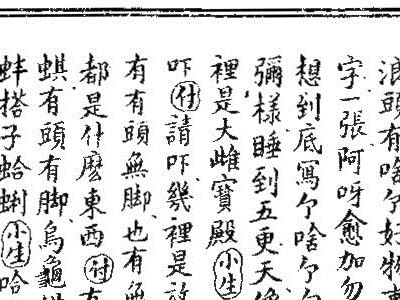 浪頭有啥个好物事
字一張阿呀愈加勿
想到底寫个啥个
彌樣睡到五更天
裡是大雌寶殿小生
吓付請吓幾裡是放
有有頭無脚也有無
都是什麽東西付有
蜞有頭有脚烏龜
蚌搭子蛤蜊小生哈